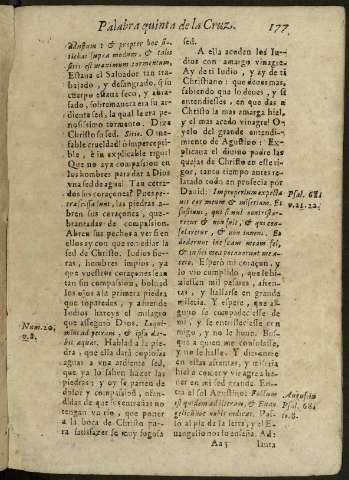 Palabra quinta de la Cruz. 177
adustum : & propter hoc si-
tiebat supra modum, & talis
sitis est maximum tormentum,
Estaua el Saluador tan tra-
bajado, y desangrado, q su
cuerpo estaua seco, y abra-
sado, sobremanera era su ar-
diente sed, la qual le era pe-
nosissimo tormento. Dize
Christo su sed. Sitio. O ine-
fable crueldad! ò imperceptib-
ble, è inexplicable rigur!
Que no aya compasion en
los hombres para dar a Dios
vna sed de agua! Tan cerra-
dos los coraçones? Pues
petræ scissæ sunt, las piedras a-
bren sus coraçones, que-
brantadas de compasion.
Abren sus pechos a ver si en
ellos ay con que remediar la
sed de Christo. Iudios fie-
ras, hombres impios, ya
que vuestros coraçones sean
tan sin compasion, bolued
los ojos a la primera piedra
que toparedes, y abrende
Iudios hazeys el milagro
que asseguró Dios. Loqui-
mini ad petram, & ipsa da-
bit aquas. Hablad a la pie-
dra, que ella dará copiosas
aguas a vna ardiente sed,
que ya lo saben hazer las
piedras; y oy se parten de
dolor y compasion,
didas de que le entrañas no
tengan vn rio, que poner
a la boca de Christo pa-
ra satisfazer se muy fogosa
Num. 20,
v. 8.
sed.
A ella aceden los Iu-
dios con amargo vinagre.
Ay de ti Iudio, y ay de ti
Christiano: que deues mas,
sabiendo que lo deues, y si
entendiesses, en que das a
Christo la mas amarga hiel,
y el mas acedo vinagre! O-
yelo del grande entendi-
miento de Agustino: Ex-
plicaua el diuino padre las
quejas de Christo en este ri-
gor, tanto tiempo antes re-
latado todo en profecia por
Dauid: Improperium expecta-
uit cor meum & miseriam. Et
sustinui, qui simul contristar-
retur & non fuit, & qui con-
solaretur, & non inueni. Et
dederunt in escam meam fel,
& in siti mea potauerunt me a-
ceto. Esperó mi coraçon, y
lo vio cumplido,
y hallarse en grande
miseria. Y esperè, que al-
guno se compadeciesse de
mi, y se entristeciesse con
migo, y no le huuo. Bus-
que a quien me consolasse,
y no le halle. Y dieronme
en ellas afrentas, y miseria
hiel a comer y vinagre a be-
ner en mi sed grande. En-
tra el sol Agustino: Factum
est quidem ad literam, & Euan-
gelium nobis indicat. Pas-
só al pie de la letra, y el E-
uangelio nos lo enseña. Ad:
Psal. 68.
v. 21. 22.
Augustin
Psal. 68.
to. 8.
Aa 3 iunta